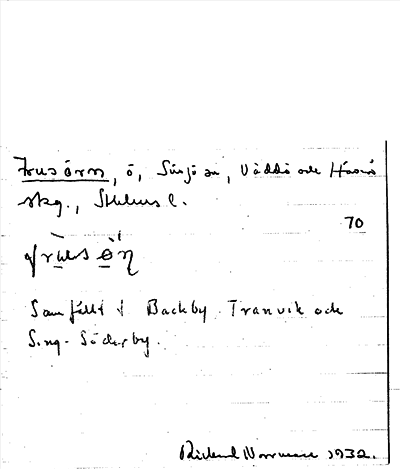 Frusörn, ö, Singö sn, Väddö och Häverö
skg., Sthlms l.
70
Samfällt f Backby Tranvik och
Sing-Söderby.
Rickard Norrman 1932.